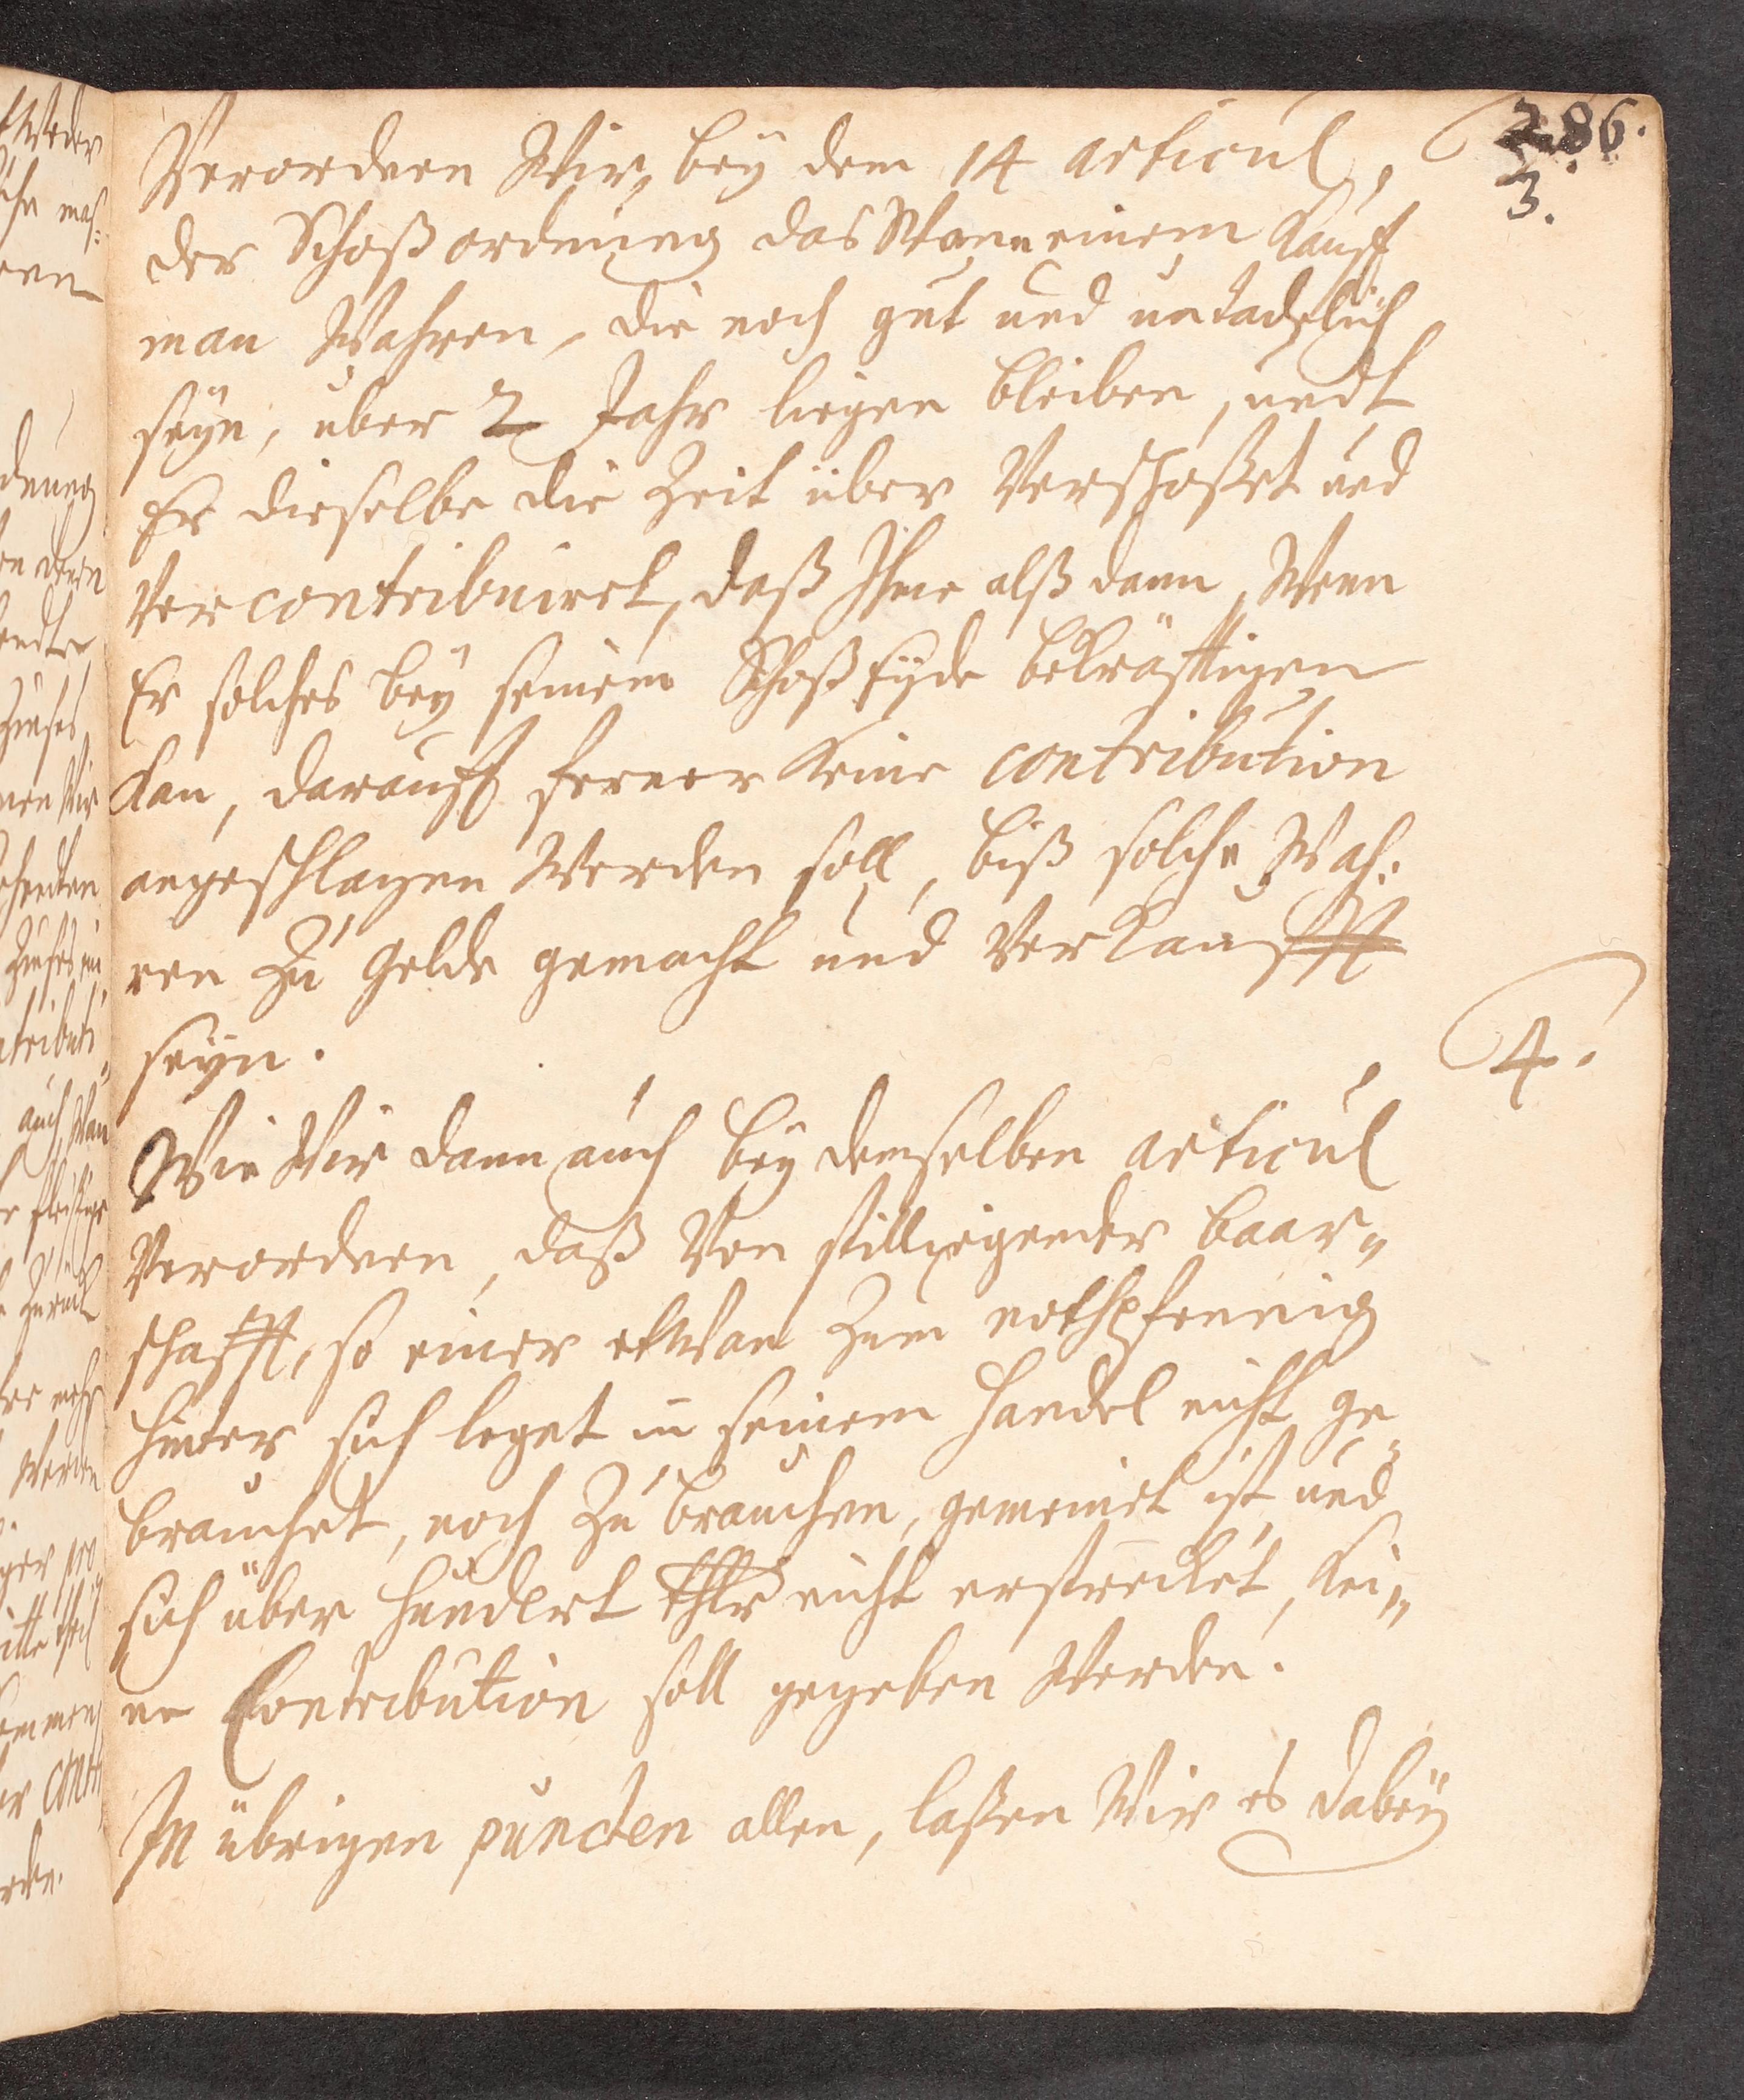 286.
3.
Verordnen Wir, bey dem 14 articul,
der Schoßordnung das Wann einem Kauff
man Wahren, die noch gut und untadelich
seyn, über 2 Jahr liegen bleiben, undt
Er dieselbe die Zeit über Verschoßet und
Vercontribuiret, daß Ihme alß dann, Wenn
Er solches bey seinem Schoß Eyde bekräfftigen
Kan, darauff ferner Keine contribution
angeschlagen Werden soll, biß solche Wah:
ren Zu Gelde gemacht und Verkaufft
seyn.
4.
Wie Wir dann auch bey demselben articul
Verordnen, daß Von stilliegender baar„
schafft, so einer etWan Zum nothpfennig
hinter sich leget in seinem Handel nicht ge„
brauchet, noch Zu brauchen, gemeinet ist und
sich über hundert thlr nicht erstrecket, Kei„
ne Contribution soll gegeben Werden.
In übrigen puncten allen, laßen Wir es dabey